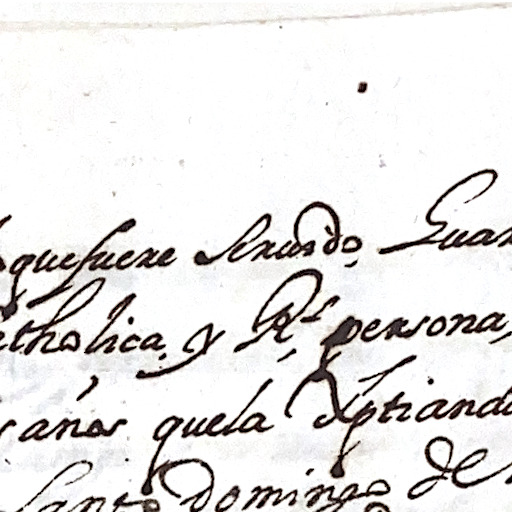 que fuere seruido, Guar
atholica, y R.l persona,
s años que la Xptiand
Santo Domingo de